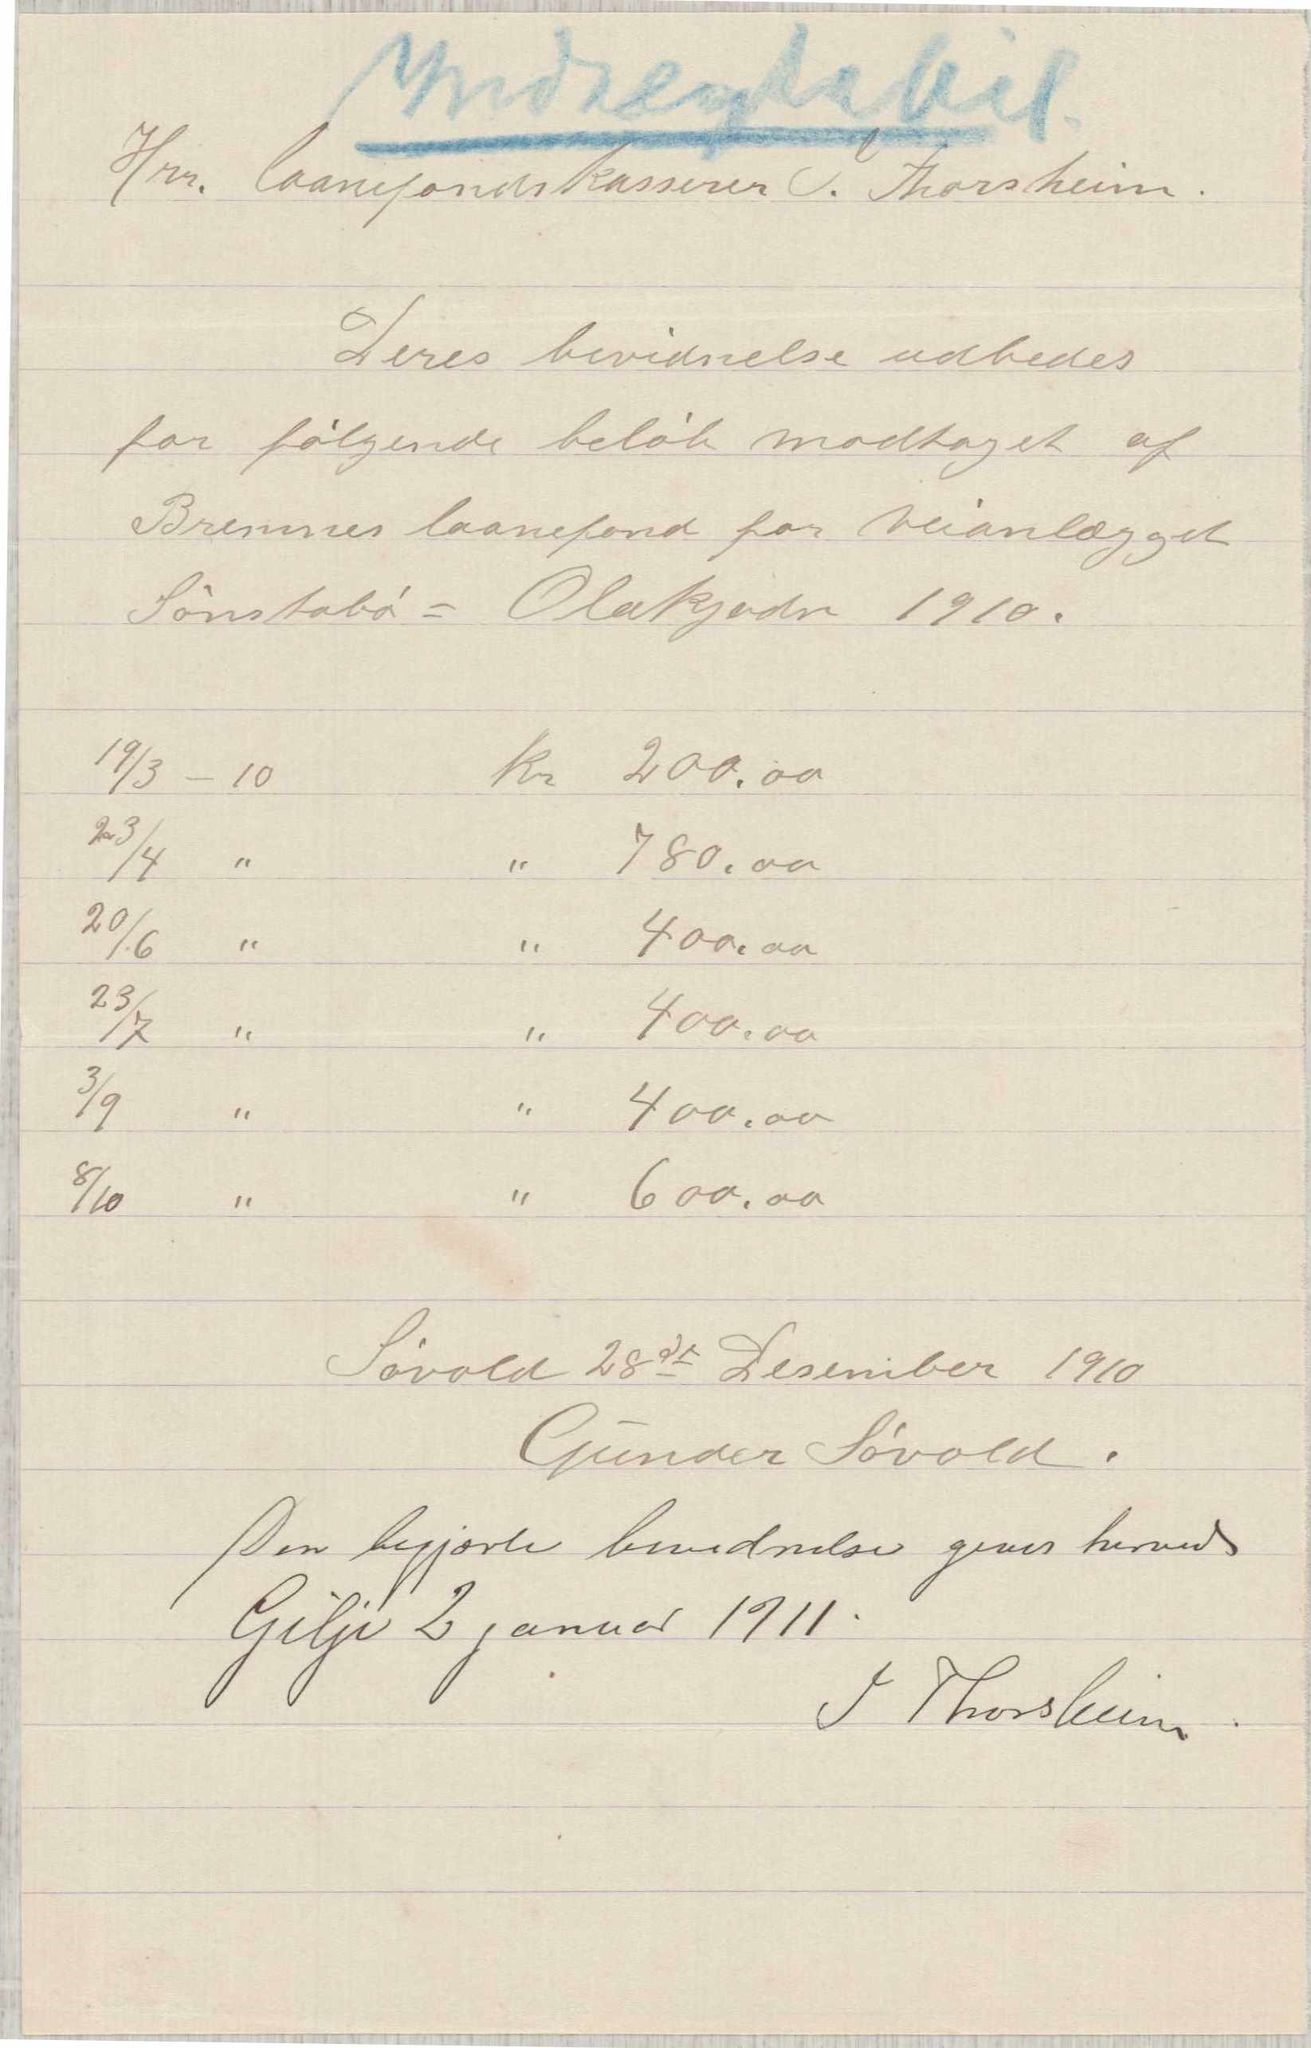 Indtægtsbil.
Hrr. laanefondskasserer J. Thorsheim.
Deres bevidnelse udbedes
for følgende beløb modtaget af
Bremnes laanefond for veianlægget
Sönstabø - Olakjødn 1910.
19/3 - 10 kr 200.00
23/4 " " 780.00
20/6 " " 400.00
23/7 " " 400.00
3/9 " " 400.00
8/10 " " 600.00
Søvold 28de Desember 1910
Gunder Søvold.
Den begjærte bevidnelse gives herved
Gilje 2 januar 1911.
J Thorsheim.